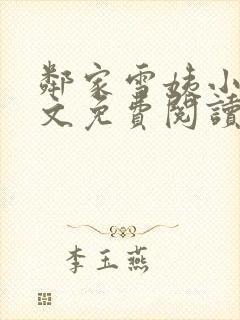 鄰家雪姨小
文免費閱讀
李玉燕